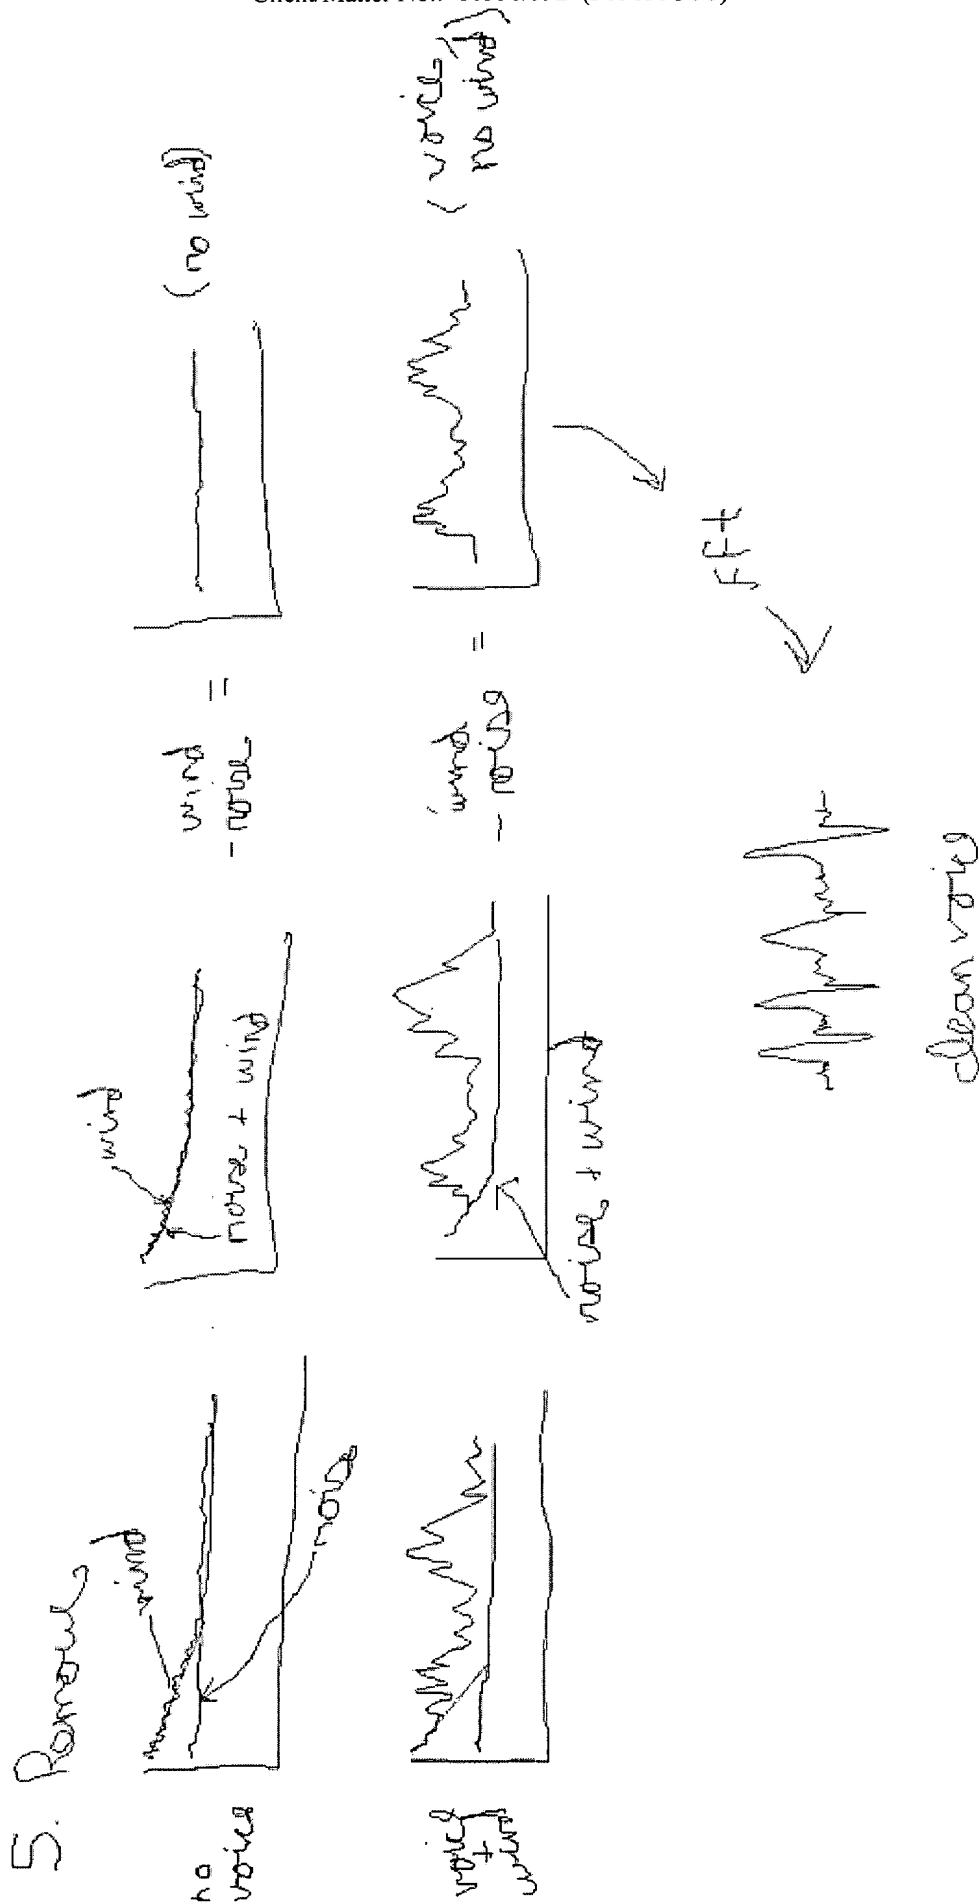 5. Remove
no
voice
wind
noise
wind
noise + wind
- noise
wind
=
(no wind)
voice
+
wind
noise + wind
-
wind
noise
=
(voice,
no wind)
fft
clean voice